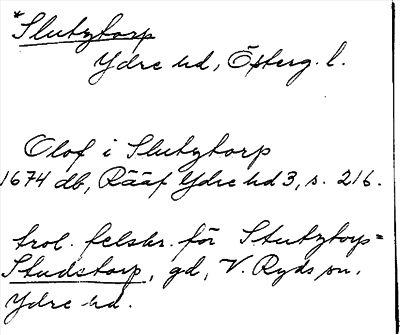 *Slutztorp
Ydre hd, Österg. l.
Olof i Slutztorp
1674 db, Rääf Ydre hd 3, s. 216.
trol. felskr. för Stutztorp=
Studstorp, gd, V. Ryds sn.
Ydre hd.